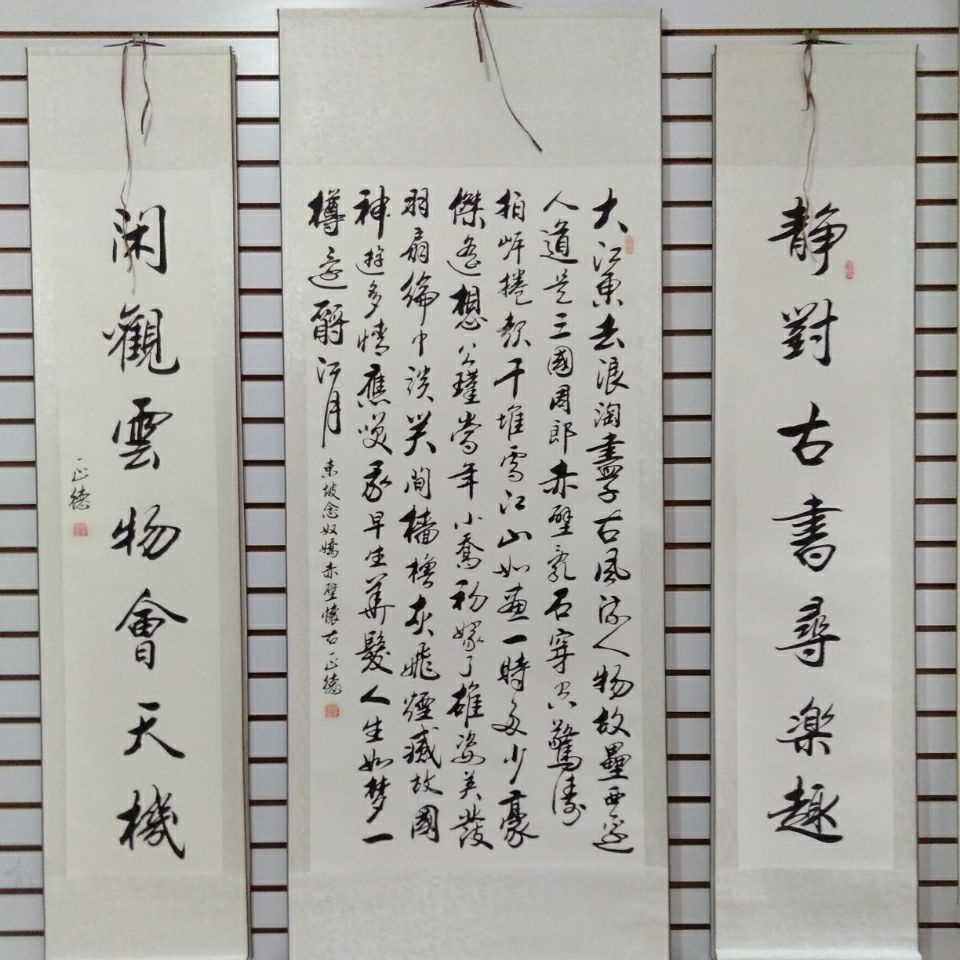 静對古書尋楽趣
大江東去浪淘盡千古風流人物故壘西邊
人道是三國周郎赤壁亂石穿空驚濤
拍岸捲起千堆雪江山如畫一時多少豪
傑遙想公瑾當年小喬初嫁了雄姿英發
羽扇綸巾談笑間檣櫓灰飛煙滅故國
神遊多情應笑我早生華髮人生如梦一
樽還酹江月
東坡念奴嬌赤壁懷古 正德
闲觀雲物會天機
正德